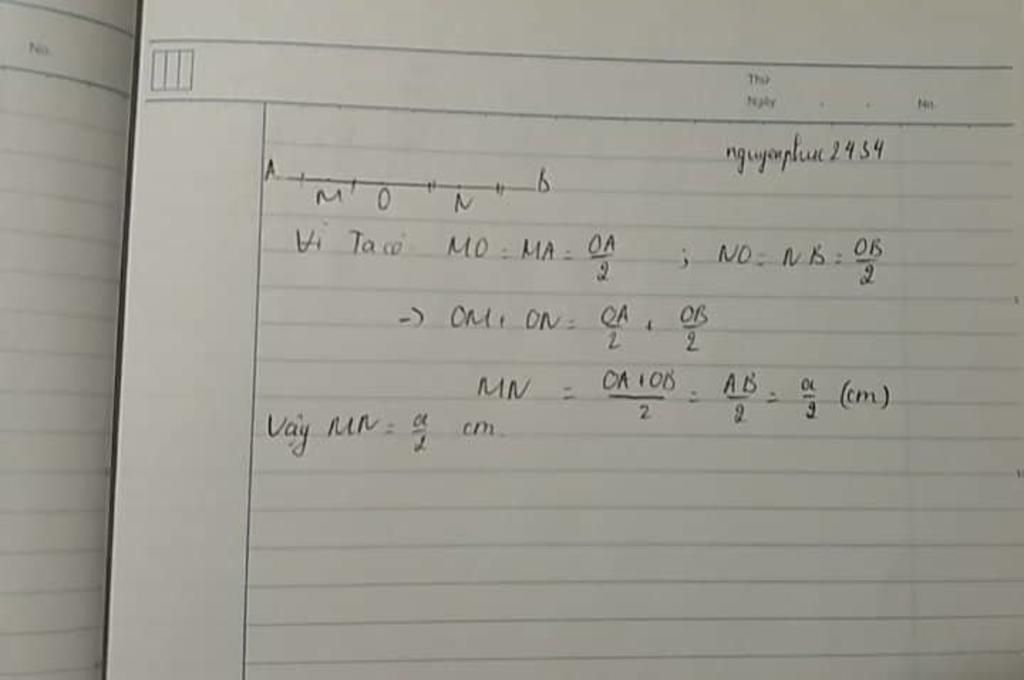 No.
Thứ
Ngày . . No.
nguyenphuc2434
A B
M O N
Vì Ta có MO = MA = OA/2 ; NO = NB = OB/2
-> OM + ON = OA/2 + OB/2
MN = OA+OB/2 = AB/2 = a/2 (cm)
Vậy MN = a/2 cm.